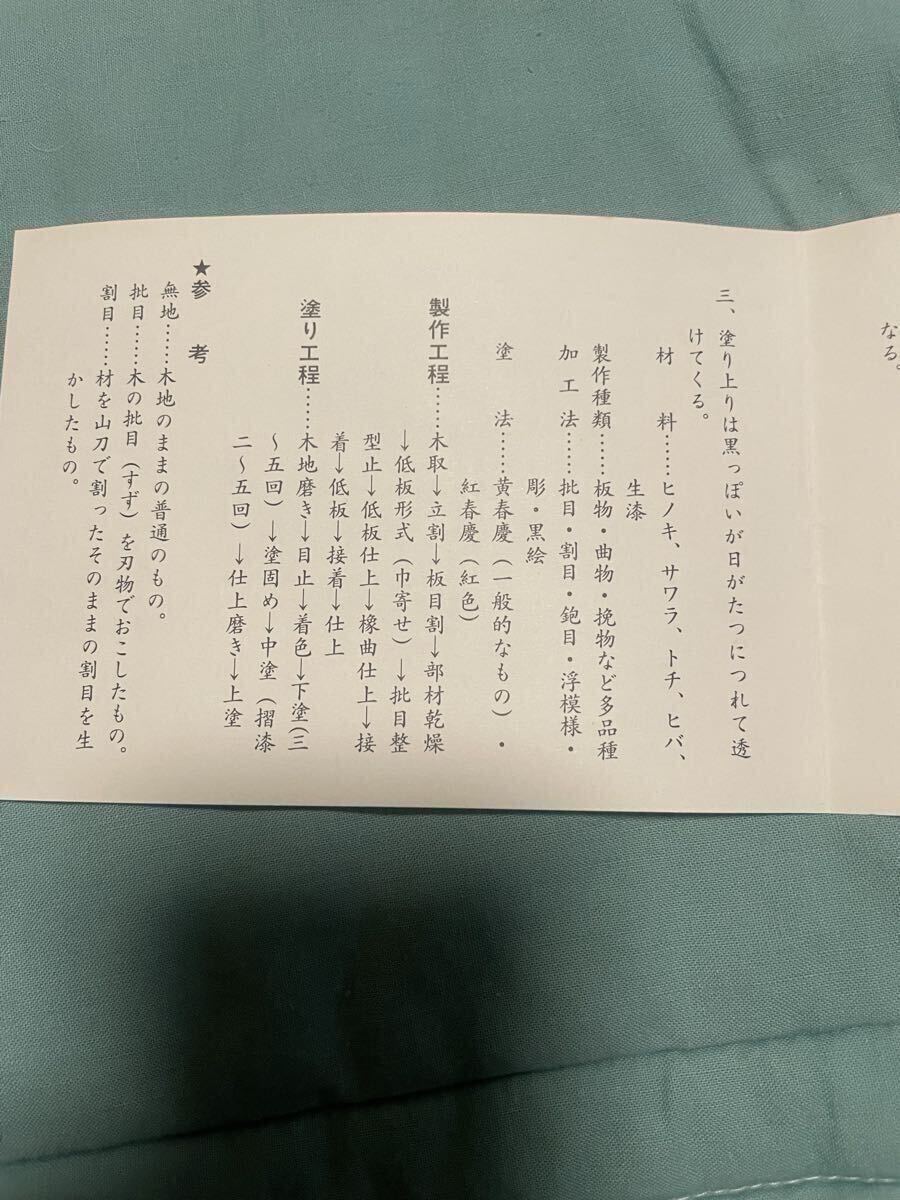 なる。
三、塗り上りは黒っぽいが日がたつにつれて透
けてくる。
材料……ヒノキ、サワラ、トチ、ヒバ、
生漆
製作種類……板物・曲物・挽物など多品種
加工法……批目・割目・鉋目・浮模様・
彫・黒絵
塗法……黄春慶（一般的なもの）・
紅春慶（紅色）
製作工程……木取→立割→板目割→部材乾燥
→低板形式（巾寄せ）→批目整
型止→低板仕上→橡曲仕上→接
着→低板→接着→仕上
塗り工程……木地磨き→目止→着色→下塗（三
～五回）→塗固め→中塗（摺漆
二～五回）→仕上磨き→上塗
★参考
無地……木地のままの普通のもの。
批目……木の批目（すず）を刃物でおこしたもの。
割目……材を山刀で割ったそのままの割目を生
かしたもの。